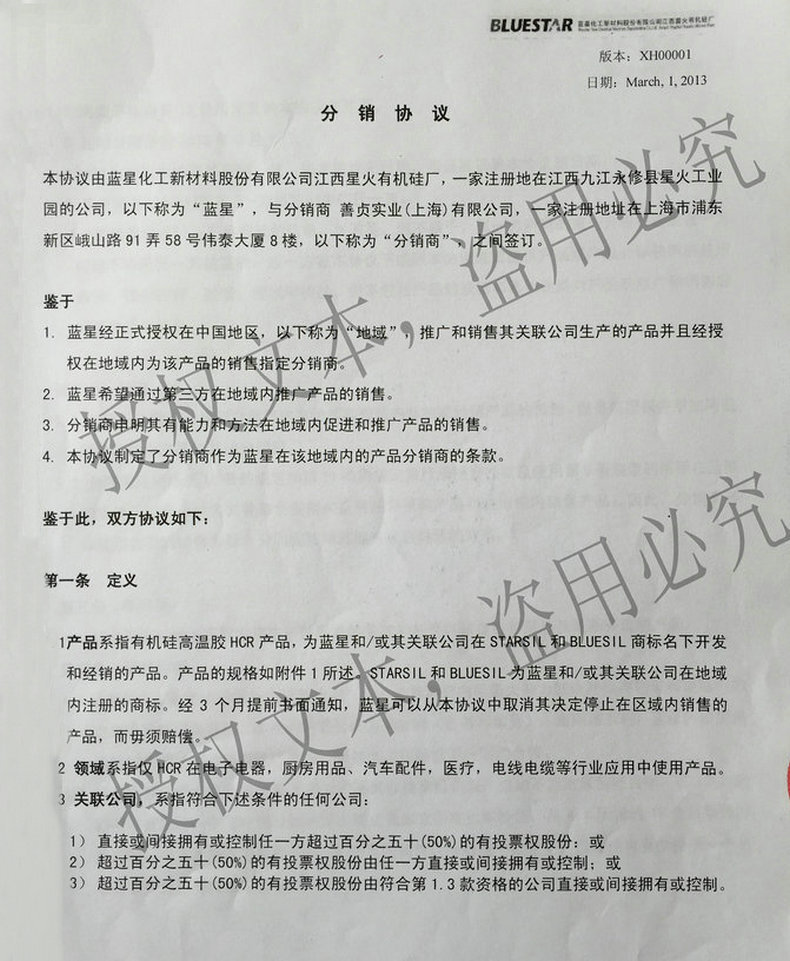 BLUESTAR 蓝星化工新材料股份有限公司江西星火有机硅厂
版本：XH00001
日期：March, 1, 2013
分 销 协 议
本协议由蓝星化工新材料股份有限公司江西星火有机硅厂，一家注册地在江西九江永修县星火工业
园的公司，以下称为“蓝星”，与分销商 善贞实业(上海)有限公司，一家注册地址在上海市浦东
新区峨山路 91 弄 58 号伟泰大厦 8 楼，以下称为“分销商”，之间签订。
鉴于
1. 蓝星经正式授权在中国地区，以下称为“地域”，推广和销售其关联公司生产的产品并且经授
权在地域内为该产品的销售指定分销商。
2. 蓝星希望通过第三方在地域内推广产品的销售。
3. 分销商申明其有能力和方法在地域内促进和推广产品的销售。
4. 本协议制定了分销商作为蓝星在该地域内的产品分销商的条款。
鉴于此，双方协议如下：
第一条 定义
1产品系指有机硅高温胶 HCR 产品，为蓝星和/或其关联公司在 STARSIL 和 BLUESIL 商标名下开发
和经销的产品。产品的规格如附件 1 所述。STARSIL 和 BLUESIL 为蓝星和/或其关联公司在地域
内注册的商标。经 3 个月提前书面通知，蓝星可以从本协议中取消其决定停止在区域内销售的
产品，而毋须赔偿。
2 领域系指仅 HCR 在电子电器，厨房用品、汽车配件，医疗，电线电缆等行业应用中使用产品。
3 关联公司，系指符合下述条件的任何公司：
1） 直接或间接拥有或控制任一方超过百分之五十(50%)的有投票权股份：或
2） 超过百分之五十(50%)的有投票权股份由任一方直接或间接拥有或控制；或
3） 超过百分之五十(50%)的有投票权股份由符合第 1.3 款资格的公司直接或间接拥有或控制。
授权文本，盗用必究
授权文本，盗用必究